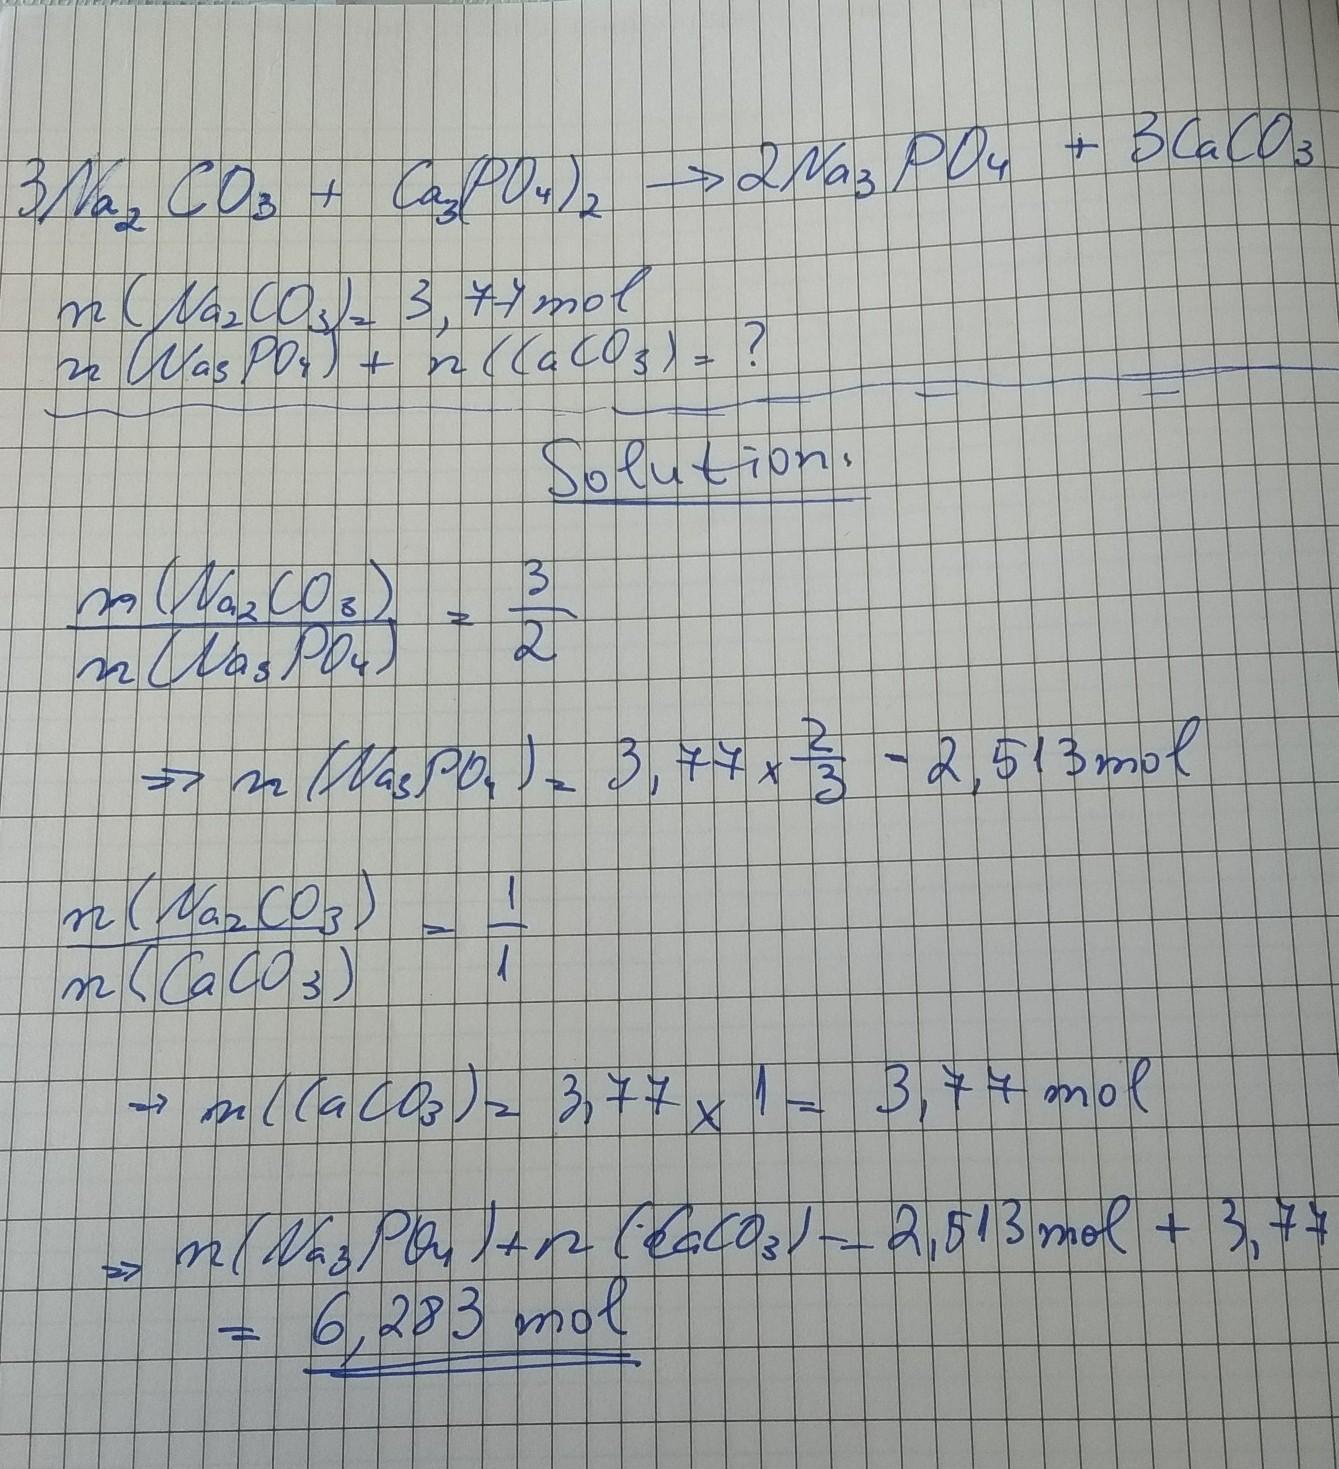 3Na₂CO₃ + Ca₃(PO₄)₂ → 2Na₃PO₄ + 3CaCO₃
n(Na₂CO₃) = 3,77 mol
n(Na₃PO₄) + n(CaCO₃) = ?
Solution.
n(Na₂CO₃) / n(Na₃PO₄) = 3/2
⇒ n(Na₃PO₄) = 3,77 × 2/3 = 2,513 mol
n(Na₂CO₃) / n(CaCO₃) = 1/1
→ n(CaCO₃) = 3,77 × 1 = 3,77 mol
⇒ n(Na₃PO₄) + n(CaCO₃) = 2,513 mol + 3,77
= 6,283 mol